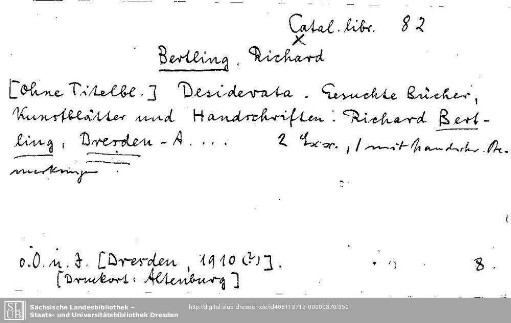 Catal. libr. 82
x
Bertling, Richard
[Ohne Titelbl.] Desiderata. Gesuchte Bücher,
Kunstblätter und Handschriften: Richard Bert-
ling, Dresden-A. ... 2 Exx., 1 mit handschr. Be-
merkungen.
o.O. u. J. [Dresden, 1910(?)]. 8.
[Druckort: Altenburg]
Sächsische Landesbibliothek –
Staats- und Universitätsbibliothek Dresden